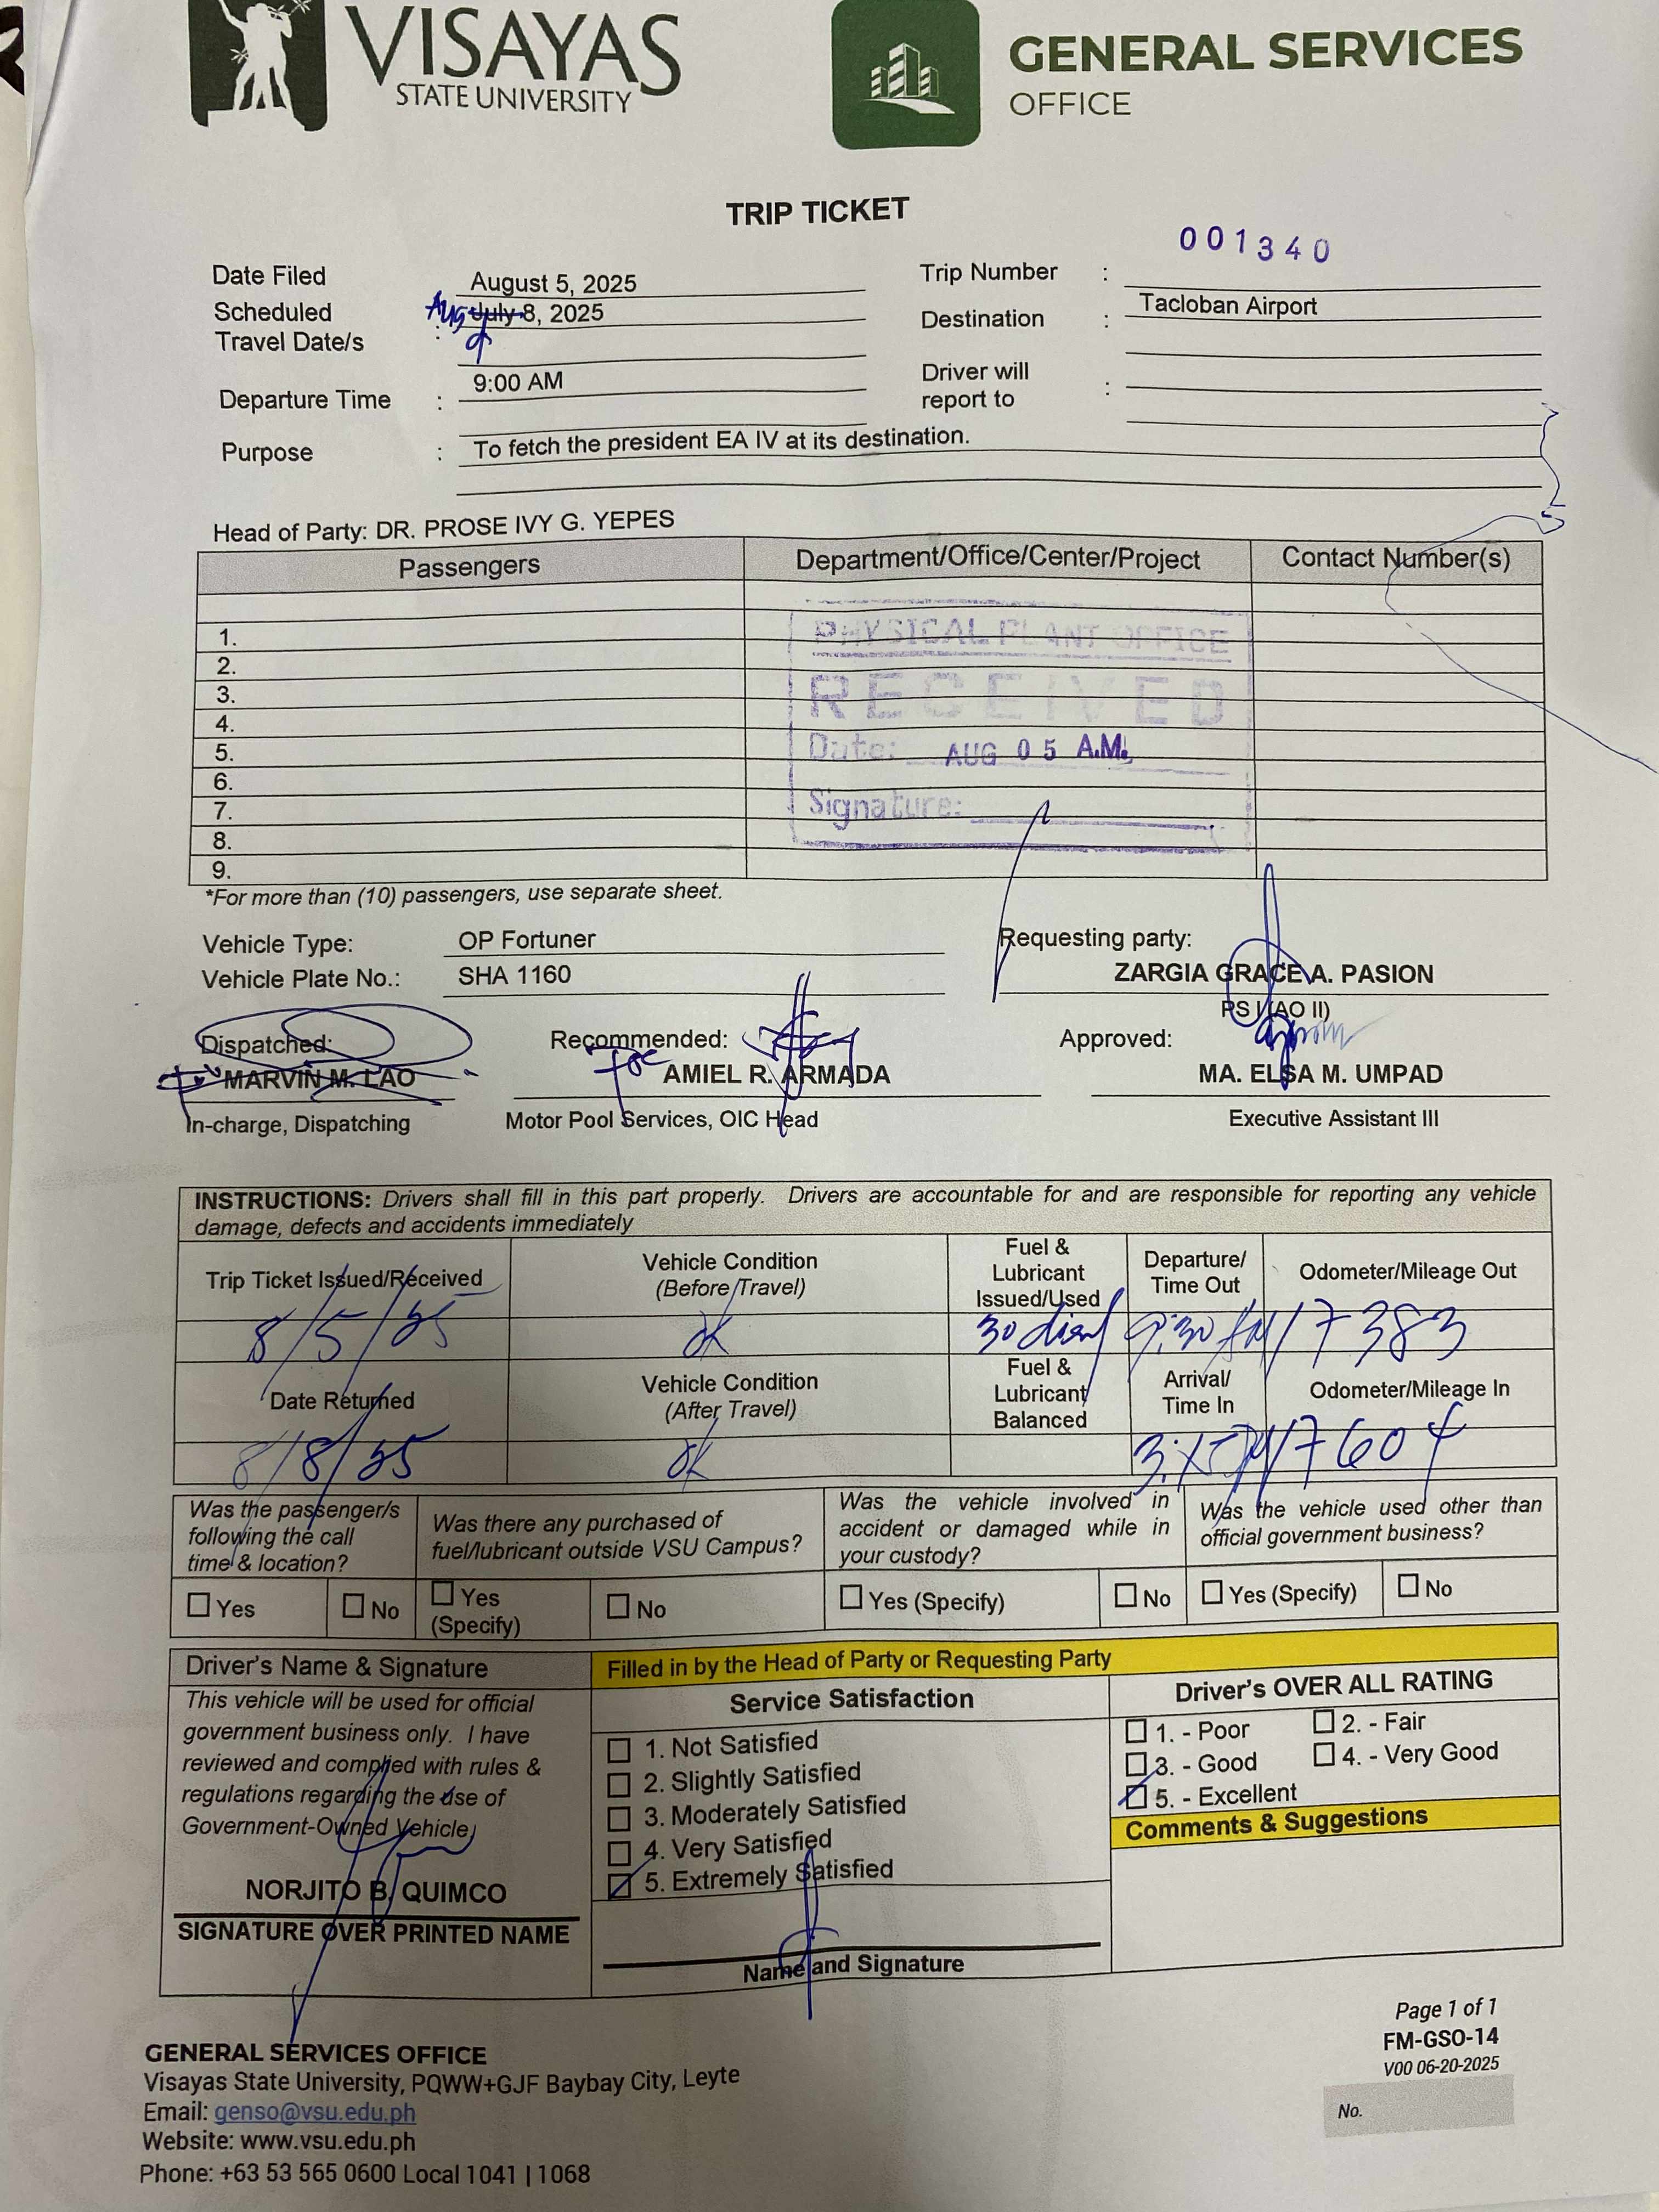 VISAYAS
STATE UNIVERSITY
GENERAL SERVICES
OFFICE
TRIP TICKET
001340
Date Filed August 5, 2025
Trip Number :
Scheduled Travel Date/s : Aug July 8, 2025
Destination : Tacloban Airport
Departure Time : 9:00 AM
Driver will report to :
Purpose : To fetch the president EA IV at its destination.
Head of Party: DR. PROSE IVY G. YEPES
Passengers Department/Office/Center/Project Contact Number(s)
1.
2.
3.
4.
5.
6.
7.
8.
9.
PHYSICAL PLANT OFFICE
RECEIVED
Date: AUG 05 A.M.
Signature:
*For more than (10) passengers, use separate sheet.
Vehicle Type: OP Fortuner
Vehicle Plate No.: SHA 1160
Requesting party:
ZARGIA GRACE A. PASION
PS I (AO II)
Dispatched:
MARVIN M. LAO
In-charge, Dispatching
Recommended:
for AMIEL R. ARMADA
Motor Pool Services, OIC Head
Approved:
MA. ELSA M. UMPAD
Executive Assistant III
INSTRUCTIONS: Drivers shall fill in this part properly. Drivers are accountable for and are responsible for reporting any vehicle
damage, defects and accidents immediately
Trip Ticket Issued/Received
Vehicle Condition
(Before Travel)
Fuel &
Lubricant
Issued/Used
Departure/
Time Out
Odometer/Mileage Out
8/5/25 ok 30 9:30 17383
Date Returned
Vehicle Condition
(After Travel)
Fuel &
Lubricant
Balanced
Arrival/
Time In
Odometer/Mileage In
8/8/25 ok 17604
Was the passenger/s
following the call
time & location?
Was there any purchased of
fuel/lubricant outside VSU Campus?
Was the vehicle involved in
accident or damaged while in
your custody?
Was the vehicle used other than
official government business?
Yes No Yes
(Specify) No Yes (Specify) No Yes (Specify) No
Driver's Name & Signature
This vehicle will be used for official
government business only. I have
reviewed and complied with rules &
regulations regarding the use of
Government-Owned Vehicle
NORJITO B. QUIMCO
SIGNATURE OVER PRINTED NAME
Filled in by the Head of Party or Requesting Party
Service Satisfaction
1. Not Satisfied
2. Slightly Satisfied
3. Moderately Satisfied
4. Very Satisfied
5. Extremely Satisfied
Name and Signature
Driver's OVER ALL RATING
1. - Poor 2. - Fair
3. - Good 4. - Very Good
5. - Excellent
Comments & Suggestions
Page 1 of 1
FM-GSO-14
V00 06-20-2025
No.
GENERAL SERVICES OFFICE
Visayas State University, PQWW+GJF Baybay City, Leyte
Email: genso@vsu.edu.ph
Website: www.vsu.edu.ph
Phone: +63 53 565 0600 Local 1041 | 1068